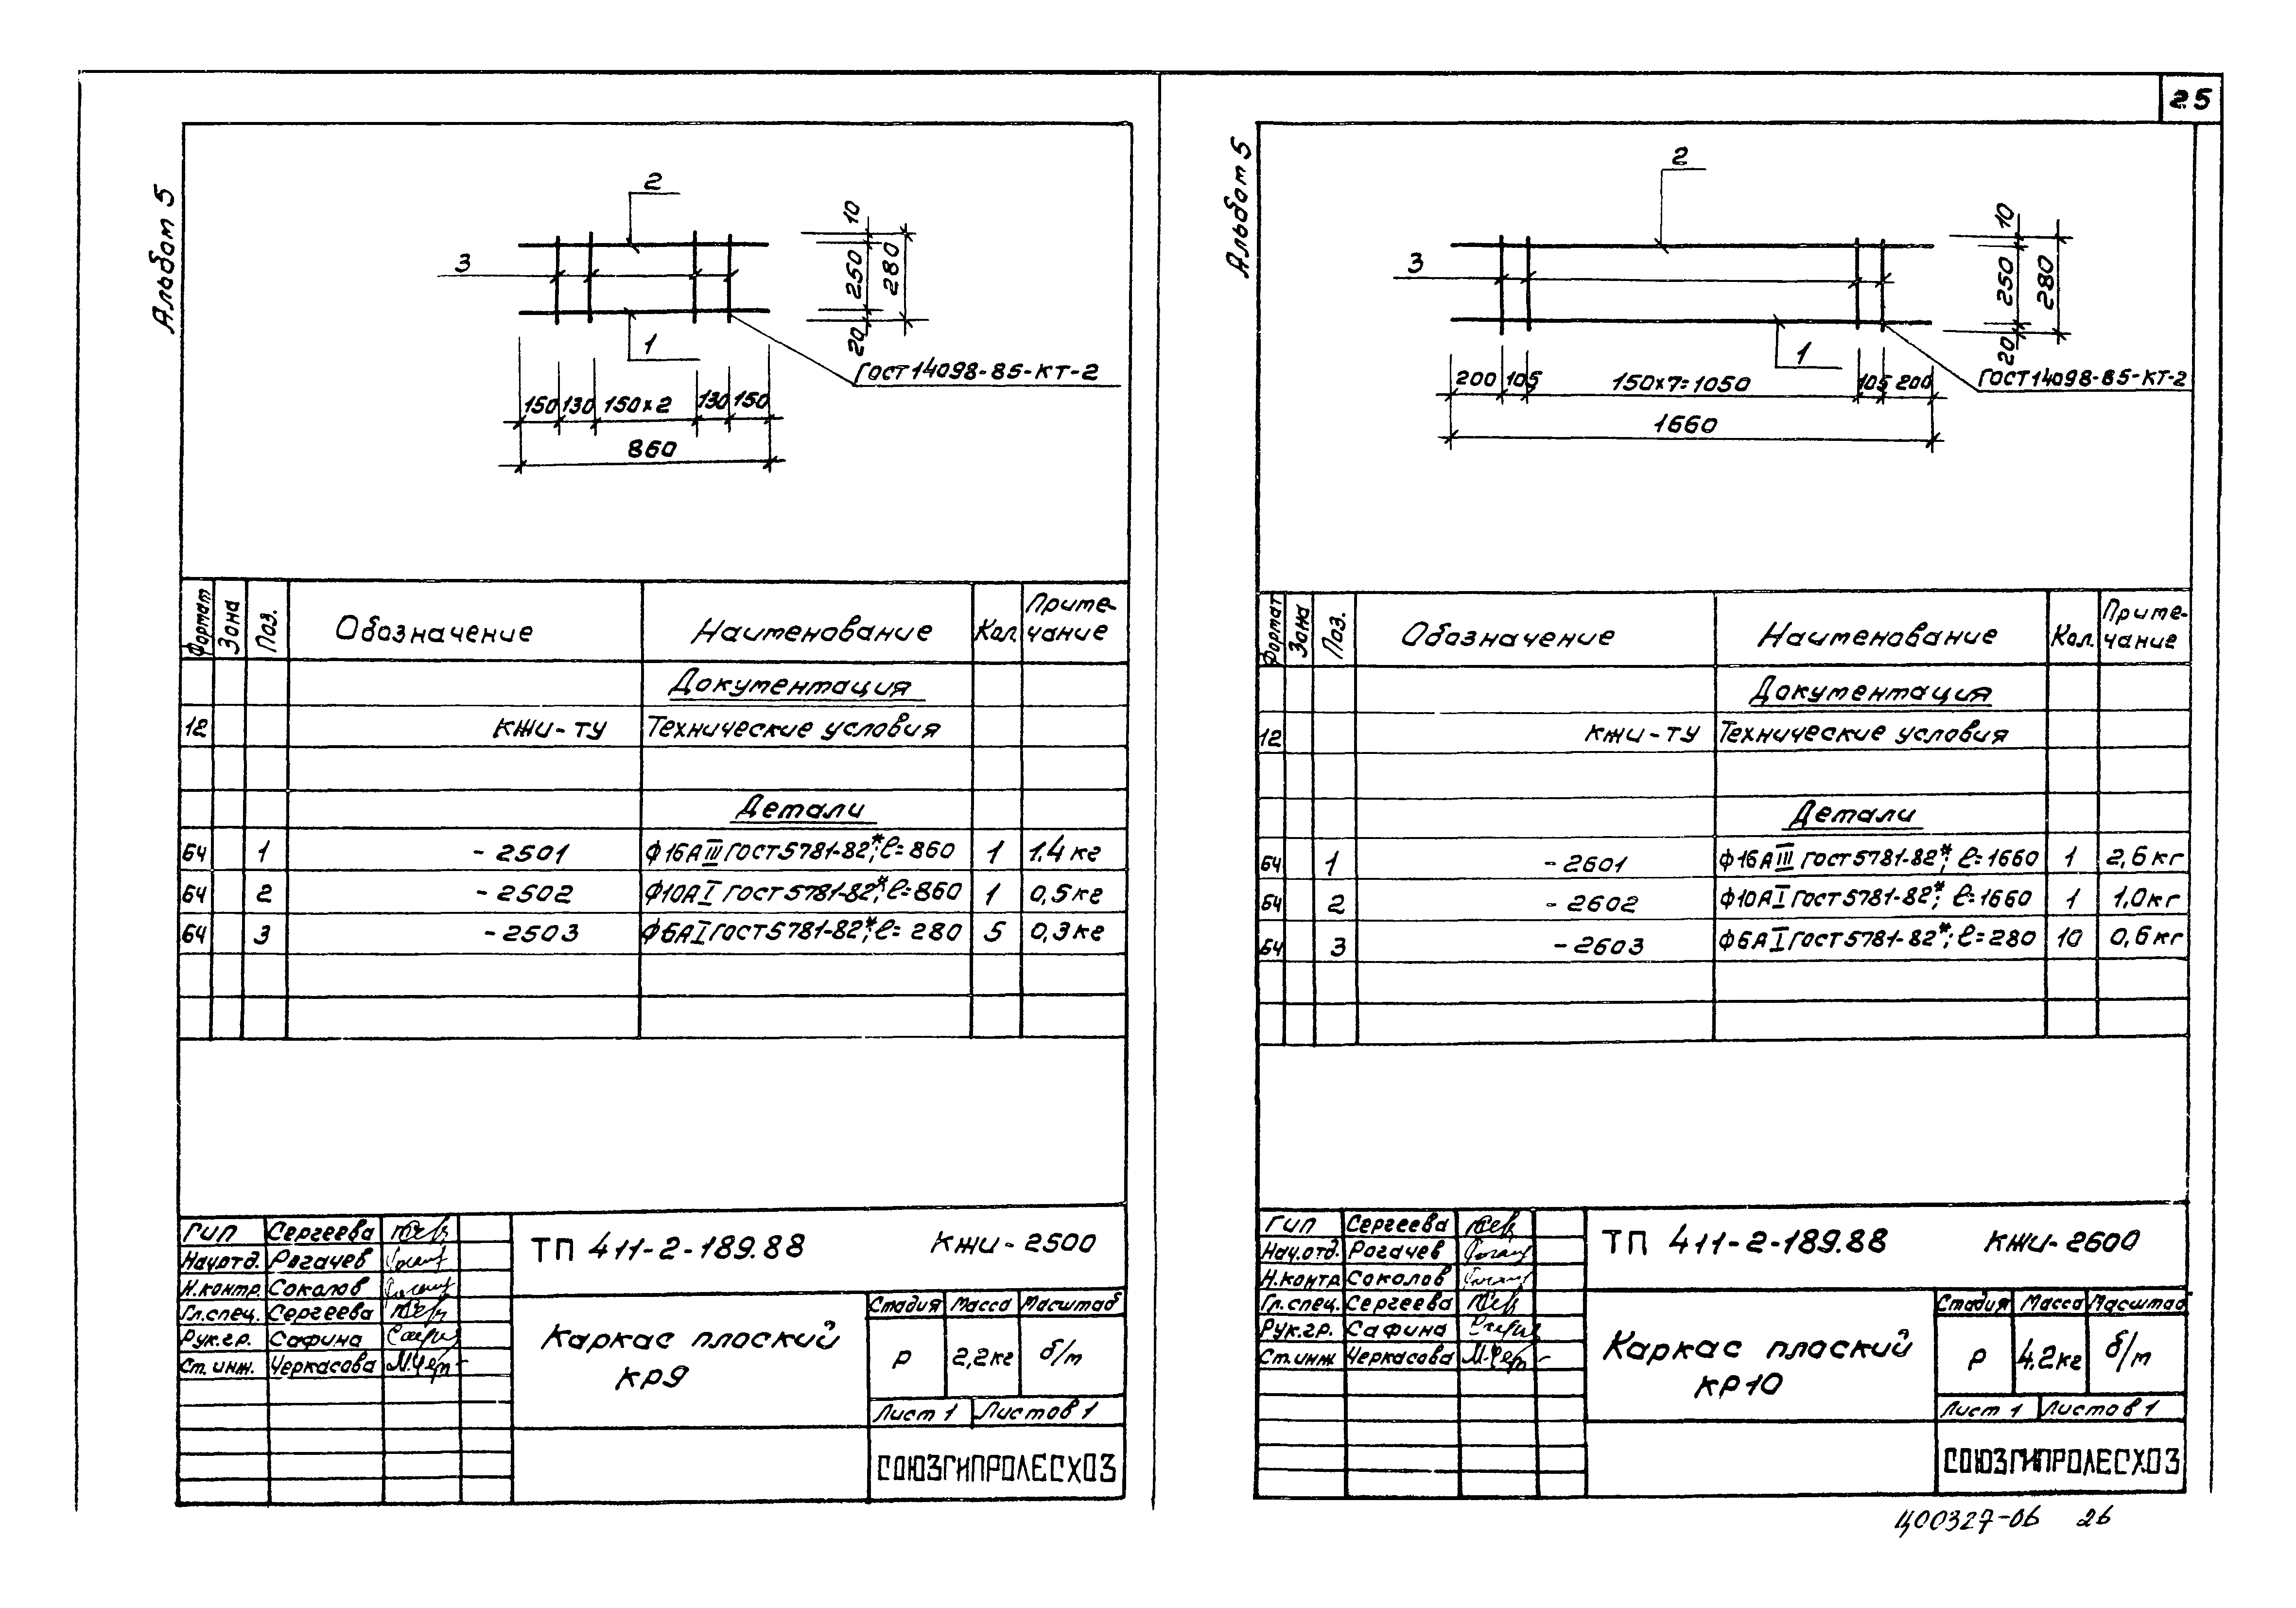 25
Альбом 5
2
3
1
10
250
280
20
ГОСТ 14098-85-КТ-2
150 130 150×2 130 150
860
Формат Зона Поз. Обозначение Наименование Кол. Примечание
Документация
12 КЖИ-ТУ Технические условия
Детали
БЧ 1 -2501 Ф16АIII ГОСТ 5781-82*; ℓ=860 1 1,4 кг
БЧ 2 -2502 Ф10АI ГОСТ 5781-82*; ℓ=860 1 0,5 кг
БЧ 3 -2503 Ф6АI ГОСТ 5781-82*; ℓ=280 5 0,3 кг
ГИП Сергеева
Нач.отд. Рогачев
Н.контр. Соколов
Гл.спец. Сергеева
Рук.гр. Сафина
Ст.инж. Черкасова
ТП 411-2-189.88 КЖИ-2500
Каркас плоский
КР9
Стадия Масса Масштаб
Р 2,2кг б/м
Лист 1 Листов 1
СОЮЗГИПРОЛЕСХОЗ
Альбом 5
2
3
1
10
250
280
20
ГОСТ 14098-85-КТ-2
200 105 150×7=1050 105 200
1660
Формат Зона Поз. Обозначение Наименование Кол. Примечание
Документация
12 КЖИ-ТУ Технические условия
Детали
БЧ 1 -2601 Ф16АIII ГОСТ 5781-82*; ℓ=1660 1 2,6 кг
БЧ 2 -2602 Ф10АI ГОСТ 5781-82*; ℓ=1660 1 1,0 кг
БЧ 3 -2603 Ф6АI ГОСТ 5781-82*; ℓ=280 10 0,6 кг
ГИП Сергеева
Нач.отд. Рогачев
Н.контр. Соколов
Гл.спец. Сергеева
Рук.гр. Сафина
Ст.инж. Черкасова
ТП 411-2-189.88 КЖИ-2600
Каркас плоский
КР10
Стадия Масса Масштаб
Р 4,2кг б/м
Лист 1 Листов 1
СОЮЗГИПРОЛЕСХОЗ
Ц00327-06 26